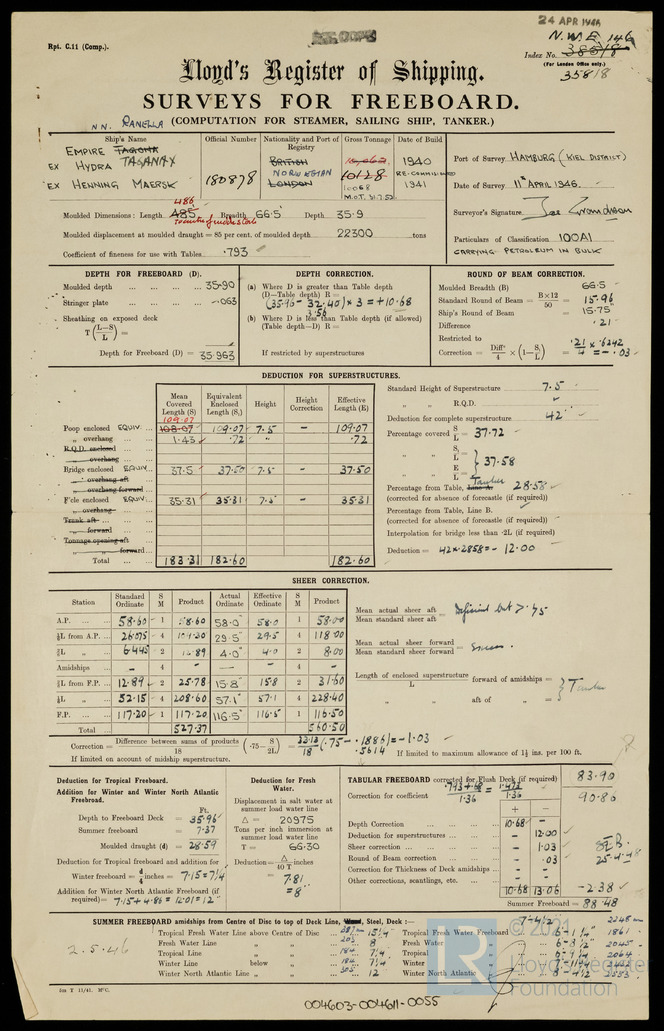 24 APR 1946
Rpt. C.11 (Comp.).
N.W.E. 146
Index No. 385/8
(For London Office only.)
35818
Lloyd's Register of Shipping.
SURVEYS FOR FREEBOARD.
(COMPUTATION FOR STEAMER, SAILING SHIP, TANKER.)
N.N. RANELLA
Ship's Name
EMPIRE TAGONA
EX HYDRA TAGANAX
EX HENNING MAERSK
Official Number
180878
Nationality and Port of Registry
BRITISH
NORWEGIAN
LONDON
Gross Tonnage
10128
10068
M.O.T. 31.7.52
Date of Build
1940
RE-COMMISSIONED
1941
Port of Survey HAMBURG (KIEL DISTRICT)
Date of Survey 11th APRIL 1946.
Surveyor's Signature
Particulars of Classification 100A1
CARRYING PETROLEUM IN BULK
486
Moulded Dimensions: Length 485 Breadth 66.5 Depth 35.9
Moulded displacement at moulded draught = 85 per cent. of moulded depth 22300 tons
Coefficient of fineness for use with Tables .793
DEPTH FOR FREEBOARD (D).
Moulded depth 35.90
Stringer plate .063
Sheathing on exposed deck
T (L-S/L) =
Depth for Freeboard (D) = 35.963
DEPTH CORRECTION.
(a) Where D is greater than Table depth
(D-Table depth) R =
(35.96 - 32.40) × 3 = + 10.68
3.56
(b) Where D is less than Table depth (if allowed)
(Table depth-D) R =
If restricted by superstructures
ROUND OF BEAM CORRECTION.
Moulded Breadth (B) 66.5
Standard Round of Beam = B×12/50 = 15.96
Ship's Round of Beam = 15.75
Difference .21
Restricted to
Correction = Diff/4 × (1-S/L) = .21 × .6242/4 = - .03
DEDUCTION FOR SUPERSTRUCTURES.
Mean Covered Length (S) Equivalent Enclosed Length (S₁) Height Height Correction Effective Length (E)
109.07
Poop enclosed EQUIV. 108.07 109.07 7.5 - 109.07
„ overhang 1.43 .72 " .72
R.Q.D. enclosed
„ overhang
Bridge enclosed EQUIV. 37.5 37.50 7.5 - 37.50
„ overhang aft
„ overhang forward
F'cle enclosed EQUIV. 35.31 35.31 7.5 - 35.31
„ overhang
Trunk aft
„ forward
Tonnage opening aft
„ forward
Total 183.31 182.60 182.60
Standard Height of Superstructure 7.5
„ „ R.Q.D.
Deduction for complete superstructure 42"
Percentage covered S/L = 37.72
„ „ S₁/L =
„ „ E/L = } 37.58
Percentage from Table, Line A. Tanker 28.58
(corrected for absence of forecastle (if required))
Percentage from Table, Line B.
(corrected for absence of forecastle (if required))
Interpolation for bridge less than .2L (if required)
Deduction = 42 × .2858 = - 12.00
SHEER CORRECTION.
Station Standard Ordinate S M Product Actual Ordinate Effective Ordinate S M Product
A.P. 58.60 1 58.60 58.0 58.0 1 58.00
⅙L from A.P. 26.075 4 104.30 29.5 29.5 4 118.00
⅓L „ 6.445 2 12.89 4.0 4.0 2 8.00
Amidships - 4 - - - 4 -
⅓L from F.P. 12.89 2 25.78 15.8 15.8 2 31.60
⅙L „ 52.15 4 208.60 57.1 57.1 4 228.40
F.P. 117.20 1 117.20 116.5 116.5 1 116.50
Total 527.37 560.50
Mean actual sheer aft
Mean standard sheer aft = Deficient but > .75
Mean actual sheer forward
Mean standard sheer forward = Excess.
Length of enclosed superstructure/L forward of amidships =
„ „ aft of „ =
} Tanker
Correction = Difference between sums of products/18 (.75 - S/2L) = 33.13/18 (.75 - .1886) = - 1.03
.5614
If limited on account of midship superstructure.
If limited to maximum allowance of 1½ ins. per 100 ft.
Deduction for Tropical Freeboard.
Addition for Winter and Winter North Atlantic Freeboard.
Ft.
Depth to Freeboard Deck = 35.96
Summer freeboard = 7.37
Moulded draught (d) = 28.59
Deduction for Tropical freeboard and addition for
Winter freeboard = d/4 inches = 7.15 = 7¼
Addition for Winter North Atlantic Freeboard (if required) = 7.15 + 4.86 = 12.01 = 12"
Deduction for Fresh Water.
Displacement in salt water at summer load water line
Δ = 20975
Tons per inch immersion at summer load water line
T = 66.30
Deduction = Δ/40 T inches
= 7.81
= 8"
TABULAR FREEBOARD corrected for Flush Deck (if required) 83.90
Correction for coefficient .793 + .68/1.36 = 1.473/1.36 90.86
+ -
Depth Correction 10.68 -
Deduction for superstructures - 12.00
Sheer correction - 1.03
Round of Beam correction - .03
Correction for Thickness of Deck amidships - -
Other corrections, scantlings, etc. - -
10.68 13.06 - 2.38
Summer Freeboard = 88.48
25-4-46
SUMMER FREEBOARD amidships from Centre of Disc to top of Deck Line, Wood, Steel, Deck:— 7-4½ 2248 mm
Tropical Fresh Water Line above Centre of Disc 15¼ Tropical Fresh Water Freeboard 6-1¼" 1861
Fresh Water Line „ „ 203 8 Fresh Water „ 6-8½" 2045
Tropical Line „ „ 184 7¼ Tropical „ 6-9¼ 2064
Winter Line below „ 184 7¼ Winter „
Winter North Atlantic Line „ „ 305 12 Winter North Atlantic „ 8-4½ 2553
2.5.46
© 2021
LR
Lloyd's Register
Foundation
004603-004611-0055